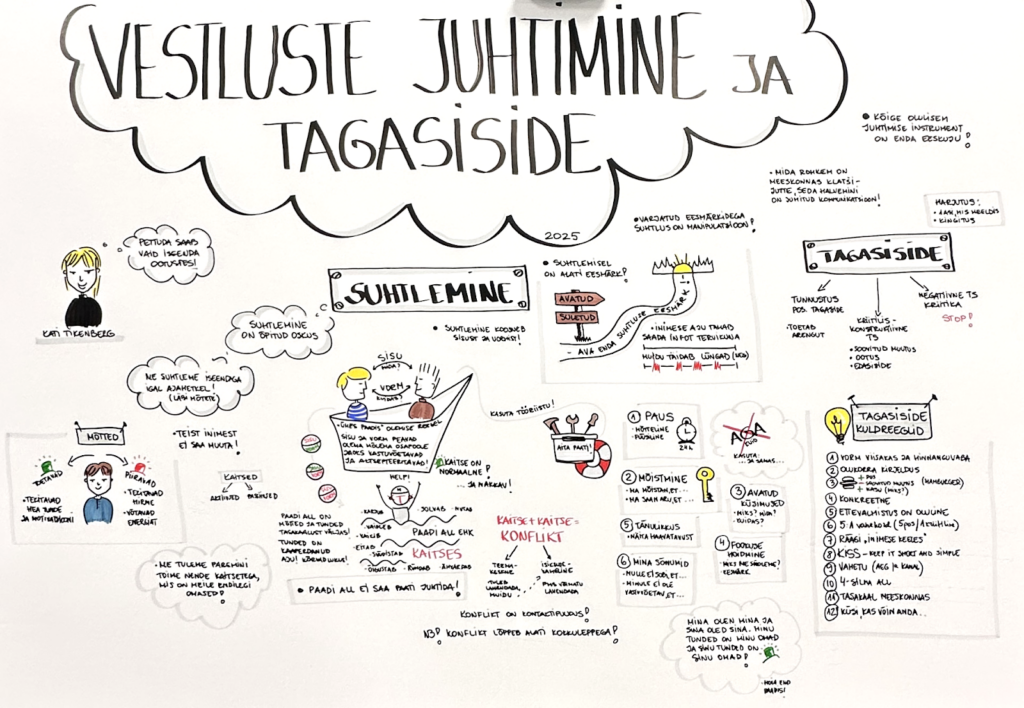 VESTLUSTE JUHTIMINE JA
TAGASISIDE
2025
• KÕIGE OLULISEM
JUHTIMISE INSTRUMENT
ON ENDA EESKUJU!
• MIDA ROHKEM ON
MEESKONNAS KLATŠI-
JUTTE, SEDA HALVEMINI
ON JUHITUD KOMMUNIKATSIOON!
HARJUTUS:
• KINGITUS
PETTUDA SAAB
VAID ISEENDA
OOTUSTES!
KATI TIKENBERG
SUHTLEMINE
ON ÕPITUD OSKUS
ME SUHTLEME ISEENDAGA
IGAL AJAHETKEL!
(LÄBI MÕTETE)
MÕTTED
AITAVAD
TEKITAVAD
HEA TUNDE
JA MOTIVATSIOONI
PIIRAVAD
TEKITAVAD
HIRME
VÕTAVAD
ENERGIAT
• TEIST INIMEST
EI SAA MUUTA!
KAITSED
• ME TULEME PAREMINI
TOIME NENDE KAITSETEGA,
MIS ON MEILE ENDILEGI
OMASED!
SUHTLEMINE
• SUHTLEMINE KOOSNEB
SISUST JA VORMIST!
SISU
MIDA?
VORM
KUIDAS?
SISU JA VORM PEAVAD
OLEMA MÕLEMA OSAPOOLE
JAOKS VASTUVÕETAVAD
JA AKTSEPTEERITAVAD!
KAITSE ON
NORMAALNE!
... JA NAKKAV!
HELP!
PAADI ALL ON
MÕTTED JA TUNDED
TASAKAALUST VÄLJAS!
TUNDED ON
KAAPERDANUD
AJU!
PAADI ALL EHK
KAITSES
• SOLVUB
• EITAB
• SÜÜDISTAB
• ÕIGUSTAB
• RÜNDAB
• ÄHVARDAB
• PAADI ALL EI SAA PAATI JUHTIDA!
• VARJATUD EESMÄRKIDEGA
SUHTLUS ON MANIPULATSIOON!
• SUHTLEMISEL
ON ALATI EESMÄRK!
AVATUD
SULETUD
- AVA ENDA SUHTLUSE EESMÄRK!
• INIMESE AJU TAHAB
SAADA INFOT TERVIKUNA
MUIDU TÄIDAB LÜNGAD (ISE)
KASUTA TÖÖRIISTU!
AITA PAATI!
KAITSE + KAITSE =
KONFLIKT
TEEMA-
KESKNE
TULEB
LAHENDADA
MUIDU
ISIKUTE-
VAHELINE
LAHENDADA
KONFLIKT ON KONTAKTIPUUDUS!
NB! KONFLIKT LÕPPEB ALATI KOKKULEPPEGA!
1 PAUS
• MÕTLEMINE
• PÜÜDLINE
24H
KASUTA
... JA SAMAS...
2 MÕISTMINE
• MA MÕISTAN, ET...
• MA SAAN ARU, ET...
3 AVATUD
KÜSIMUSED
• MIKS? MIDA?
KUIDAS?
5 TÄNULIKKUS
• NÄITA HAAVATAVUST
4 FOOKUSE
HOIDMINE
• MIKS ME SUHTLEME?
EESMÄRK
6 MINA SÕNUMID
• MULLE EI SOBI, ET...
• MINULE EI OLE
VASTUVÕETAV, ET...
MINA OLEN MINA JA
SINA OLED SINA. MINU
TUNDED ON MINU OMAD
JA SINU TUNDED ON
SINU OMAD!
• HOIA END
PAADIS!
TAGASISIDE
TUNNUSTUS
POS. TAGASISIDE
• TOETAB
ARENGUT
KRIITILIS-
KONSTRUKTIIVNE
TS
• SOOVITUD MUUTUS
• OOTUS
• EDASISIDE
NEGATIIVNE TS
KRIITIKA
STOP!
TAGASISIDE
KULDREEGLID
1 VORM VIISAKAS JA HINNANGUVABA
2 OLUKORRA KIRJELDUS
3 + POS
- SOOVITUD MUUTUS (HAMBURGER)
+ KASU (MIKS?)
4 KONKREETNE
5 ETTEVALMISTUS ON OLULINE
7 RÄÄGI „INIMESE KEELES"
8 KISS - KEEP IT SHORT AND SIMPLE
9 VAHETU (AEG JA KANAL)
10 4-SILMA ALL
11 TASAKAAL MEESKONNAS
12 KÜSI, KAS VÕIN ANDA...